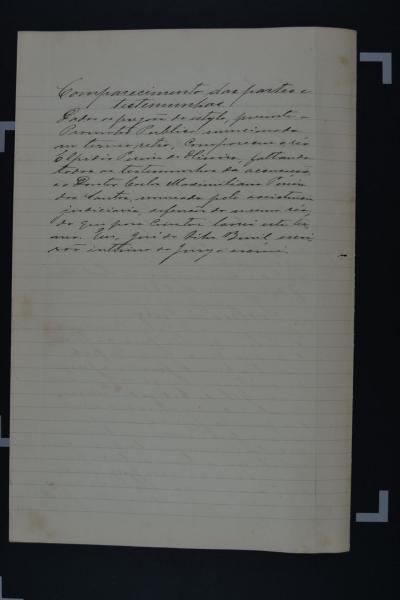 Comparecimento das partes e
testemunhas
Dados os pregões do estylo, presente o
Promotor Publico mencionado
no termo retro, compareceu o réo
Elpidio Pereira de Oliveira, faltando
todas as testemunhas da accusação
e o Doutor Carlos Maximiliano Pereira
dos Santos, nomeado pela assistencia
judiciaria, defensor do mesmo réo,
do que para constar lavrei este ter
mo. Eu, José da Silva, escri
vão interino do Jury o escrevi.